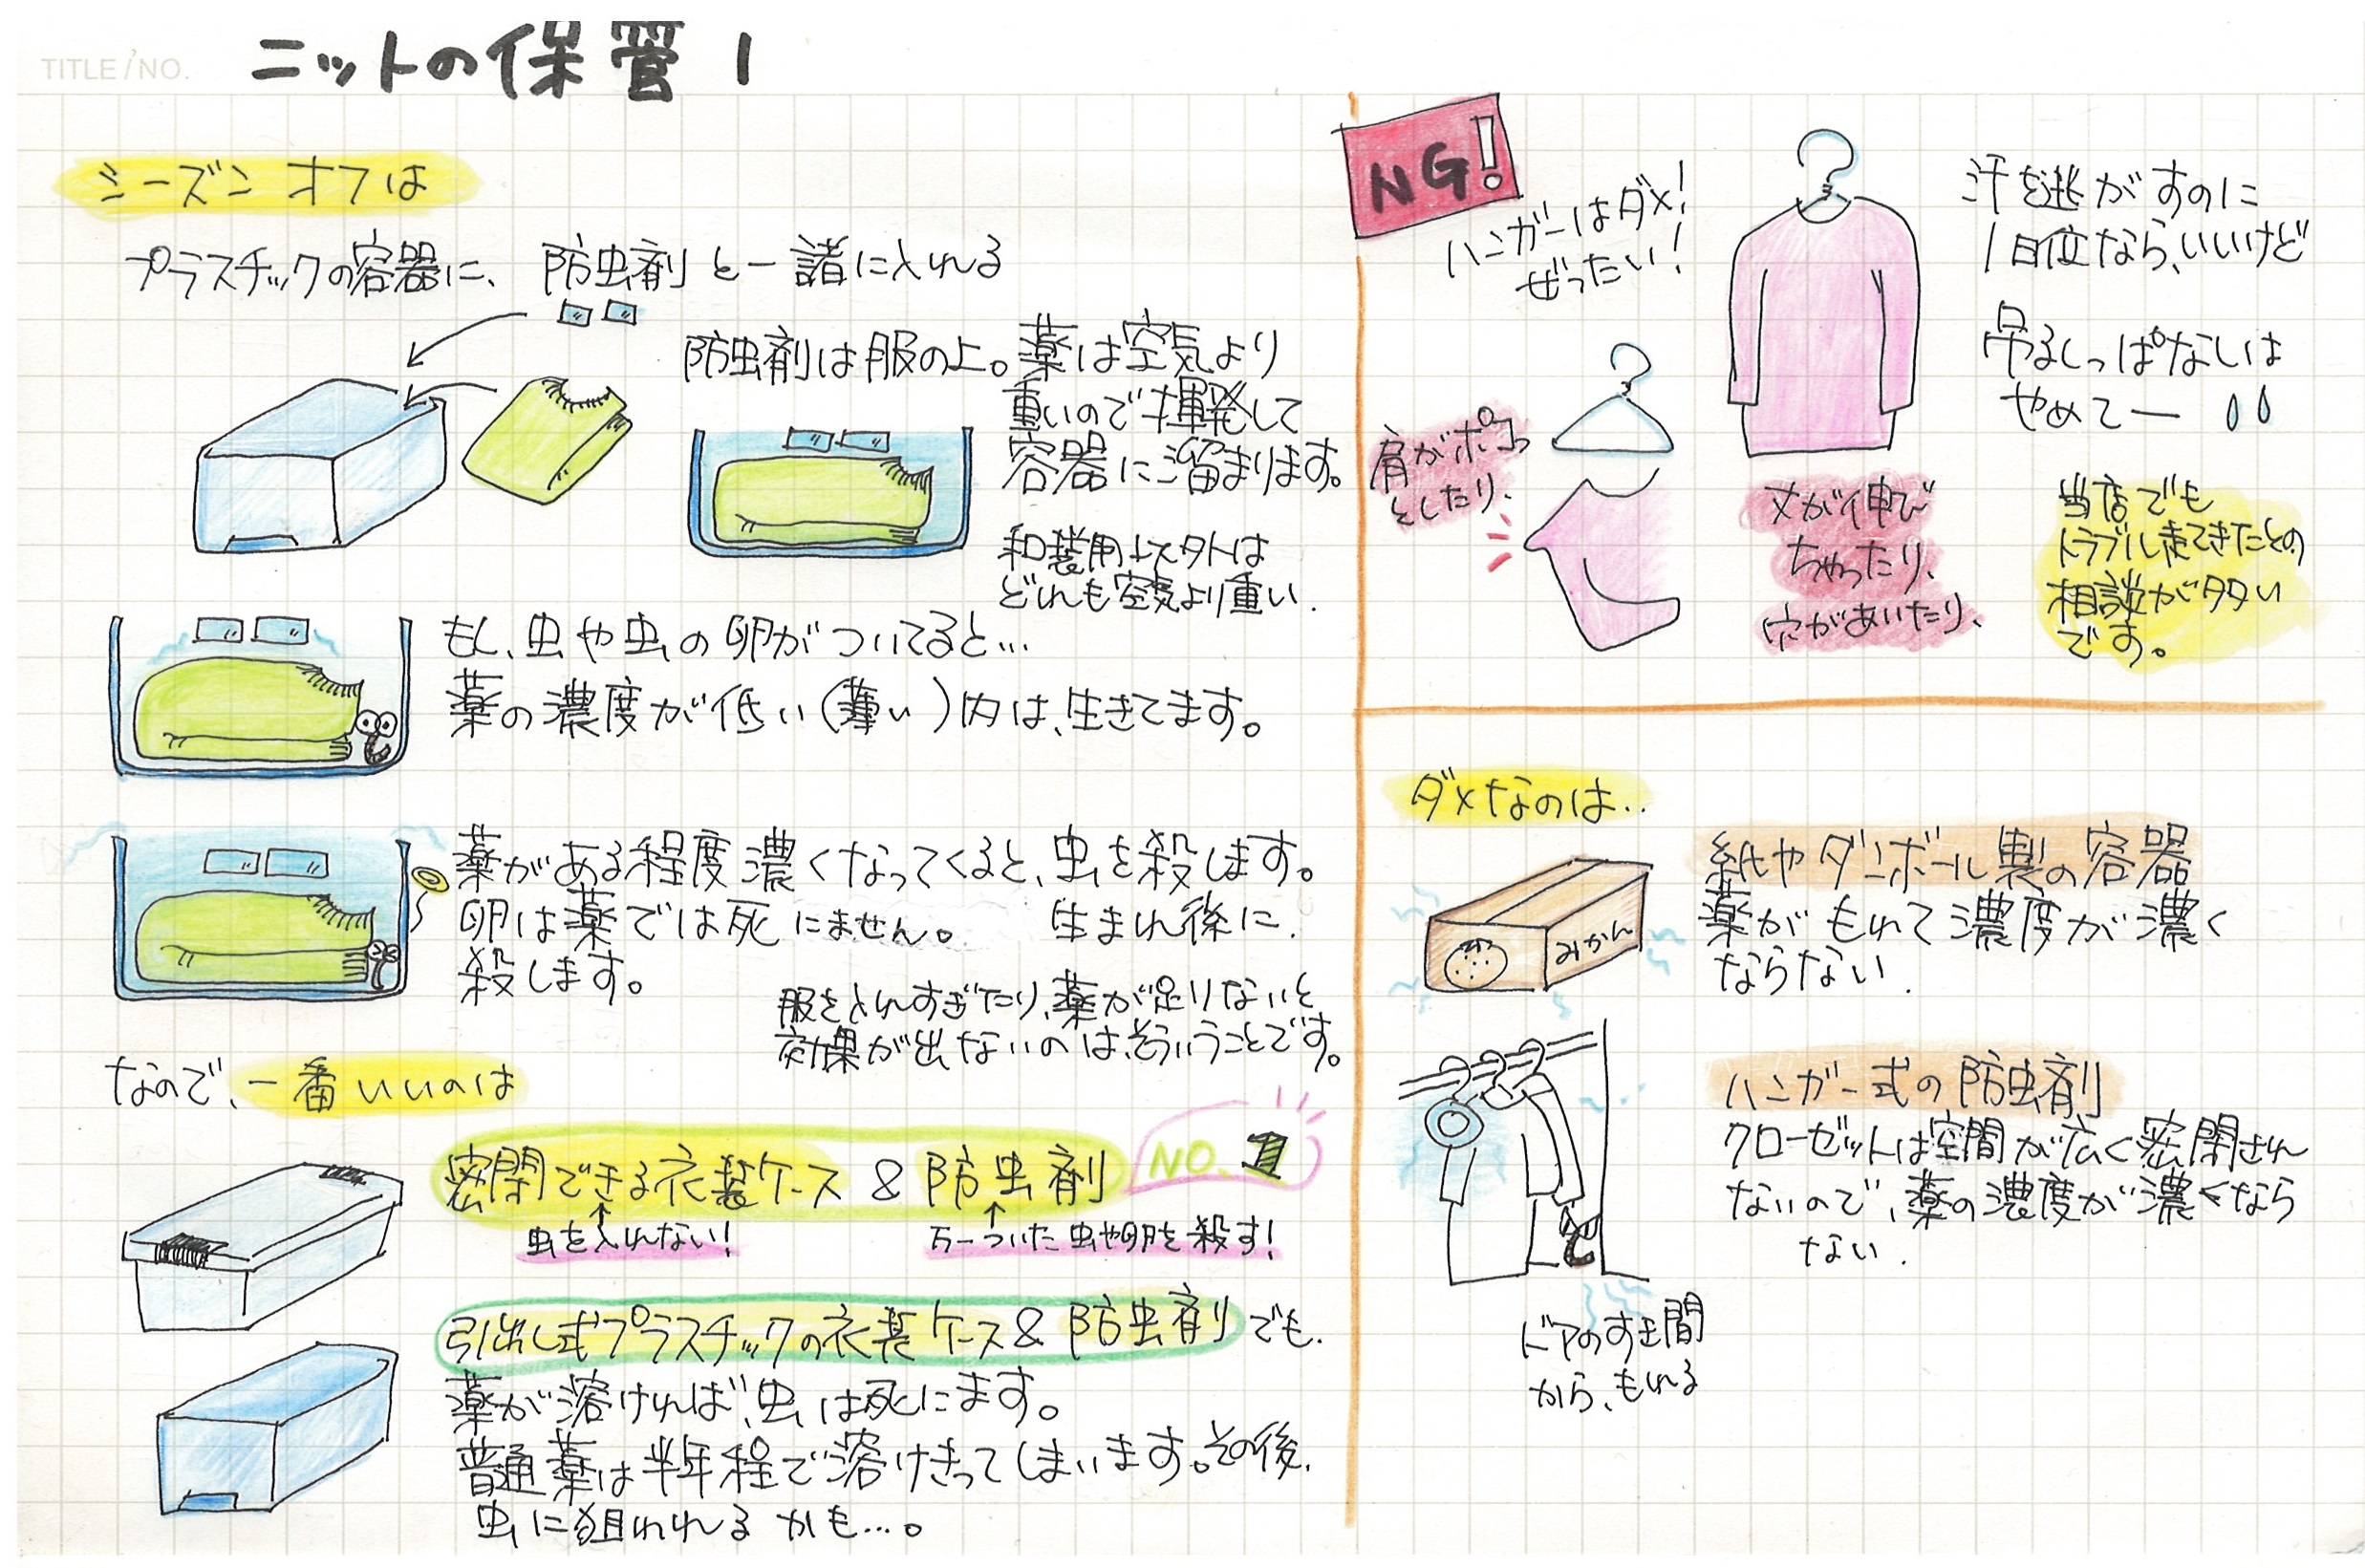 TITLE/NO.
ニットの保管 1
シーズンオフは
プラスチックの容器に、防虫剤と一諸に入れる
防虫剤は服の上。薬は空気より
重いので揮発して
容器に溜まります。
和装用以外は
どれも空気より重い.
もし、虫や虫の卵がついてると…
薬の濃度が低い(薄い)内は、生きてます。
薬がある程度濃くなってくると、虫を殺します。
卵は薬では死にません。 生まれ後に.
殺します。
服を入れすぎたり、薬が足りないと
効果が出ないのは、そういうことです。
なので、一番いいのは
密閉できる衣装ケース & 防虫剤 NO.1
虫を入れない! 万一ついた虫や卵を殺す!
引出し式プラスチックの衣装ケース & 防虫剤でも.
薬が溶ければ、虫は死にます。
普通薬は半年程で溶けきってしまいます。その後.
虫に狙われるかも…。
NG!
ハンガーはダメ!
ぜったい!
汗を逃がすのに
1日位なら、いいけど
吊るしっぱなしは
やめてー
肩がポコっ
としたり、
メが伸び
ちゃったり、
穴があいたり、
当店でも
トラブル起てきたとの
相談が多い
です。
ダメなのは..
みかん
紙やダンボール製の容器
薬がもれて濃度が濃く
ならない.
ハンガー式の防虫剤
クローゼットは空間が広く密閉され
ないので、薬の濃度が濃くなら
ない.
ドアのすき間
から、もれる